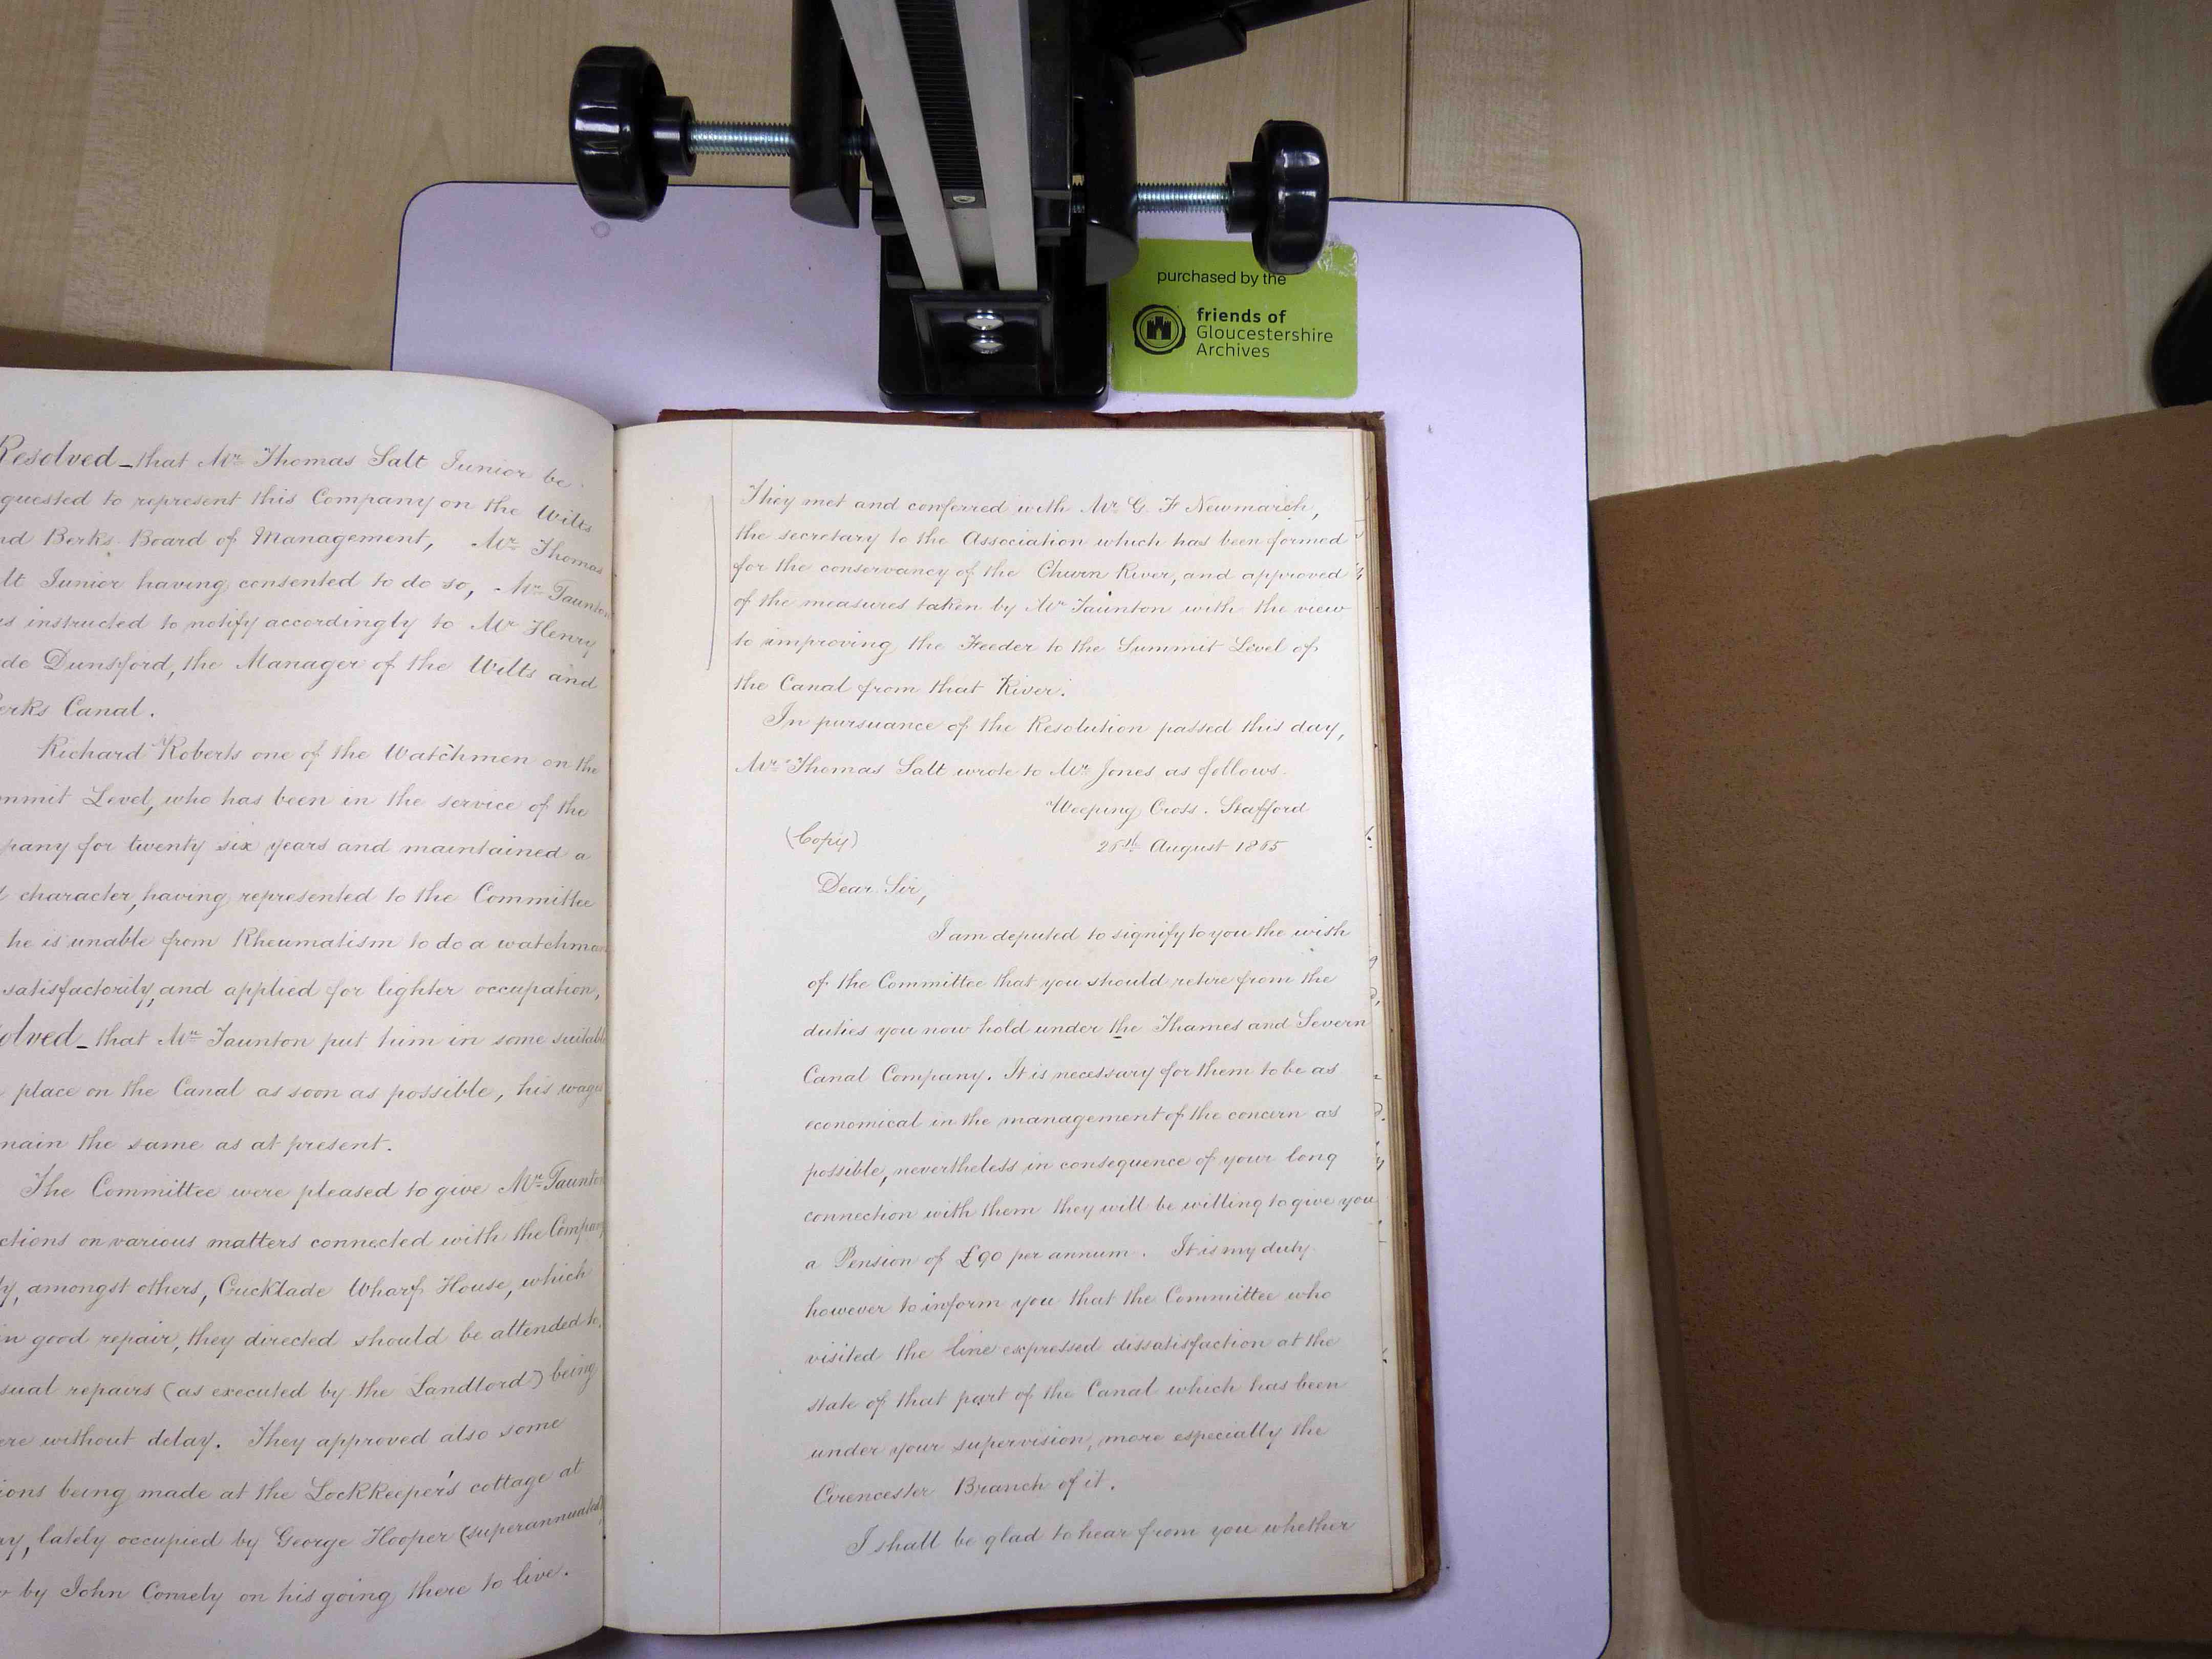 purchased by the
friends of
Gloucestershire
Archives
Resolved_that Mr Thomas Salt Junior be
quested to represent this Company on the Wilts
nd Berks Board of Management, Mr Thomas
lt Junior having consented to do so, Mr Taunton
s instructed to notify accordingly to Mr Henry
de Dunsford, the Manager of the Wilts and
erks Canal.
Richard Roberts one of the Watchmen on the
mmit Level, who has been in the service of the
pany for twenty six years and maintained a
character, having represented to the Committee
he is unable from Rheumatism to do a watchman
satisfactorily, and applied for lighter occupation,
olved_that Mr Taunton put him in some suitable
place on the Canal as soon as possible, his wages
main the same as at present.
The Committee were pleased to give Mr Taunton
ctions on various matters connected with the Company
y, amongst others, Cricklade Wharf House, which
in good repair, they directed should be attended to,
sual repairs (as executed by the Landlord) being
ere without delay. They approved also some
ions being made at the Lockkeeper's cottage at
ay, lately occupied by George Hooper (superannuated)
by John Comely on his going there to live.
They met and conferred with Mr G. F Newmarch,
the secretary to the Association which has been formed
for the conservancy of the Churn River, and approved
of the measures taken by Mr Taunton with the view
to improving the Feeder to the Summit Level of
the Canal from that River.
In pursuance of the Resolution passed this day,
Mr Thomas Salt wrote to Mr Jones as follows.
Weeping Cross. Stafford
(Copy)
26th August 1865
Dear Sir,
I am deputed to signify to you the wish
of the Committee that you should retire from the
duties you now hold under the Thames and Severn
Canal Company. It is necessary for them to be as
economical in the management of the concern as
possible, nevertheless in consequence of your long
connection with them they will be willing to give you
a Pension of £90 per annum. It is my duty
however to inform you that the Committee who
visited the line expressed dissatisfaction at the
state of that part of the Canal which has been
under your supervision, more especially the
Cirencester Branch of it.
I shall be glad to hear from you whether